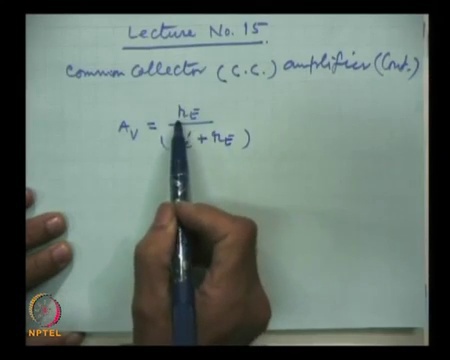 Lecture No. 15.
Common Collector (C.C.) amplifier (Cont.)
A_V = r_E / ( + r_E )
NPTEL